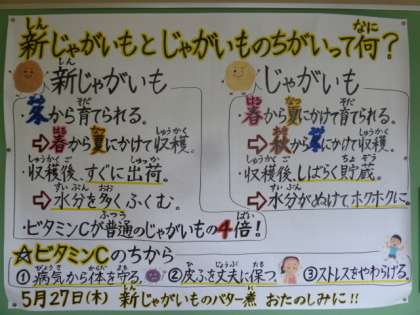 新じゃがいもとじゃがいものちがいって何?
新じゃがいも
・冬から育てられる。
⇨春から夏にかけて収穫。
・収穫後、すぐに出荷。
⇨水分を多くふくむ。
・ビタミンCが普通のじゃがいもの4倍!
じゃがいも
・春から夏にかけて育てられる。
⇨秋から冬にかけて収穫。
・収穫後、しばらく貯蔵。
⇨水分がぬけてホクホクに。
☆ビタミンCのちから
①病気から体を守る。 ②皮ふを丈夫に保つ。 ③ストレスをやわらげる。
5月27日(木) 新じゃがいものバター煮 おたのしみに!!